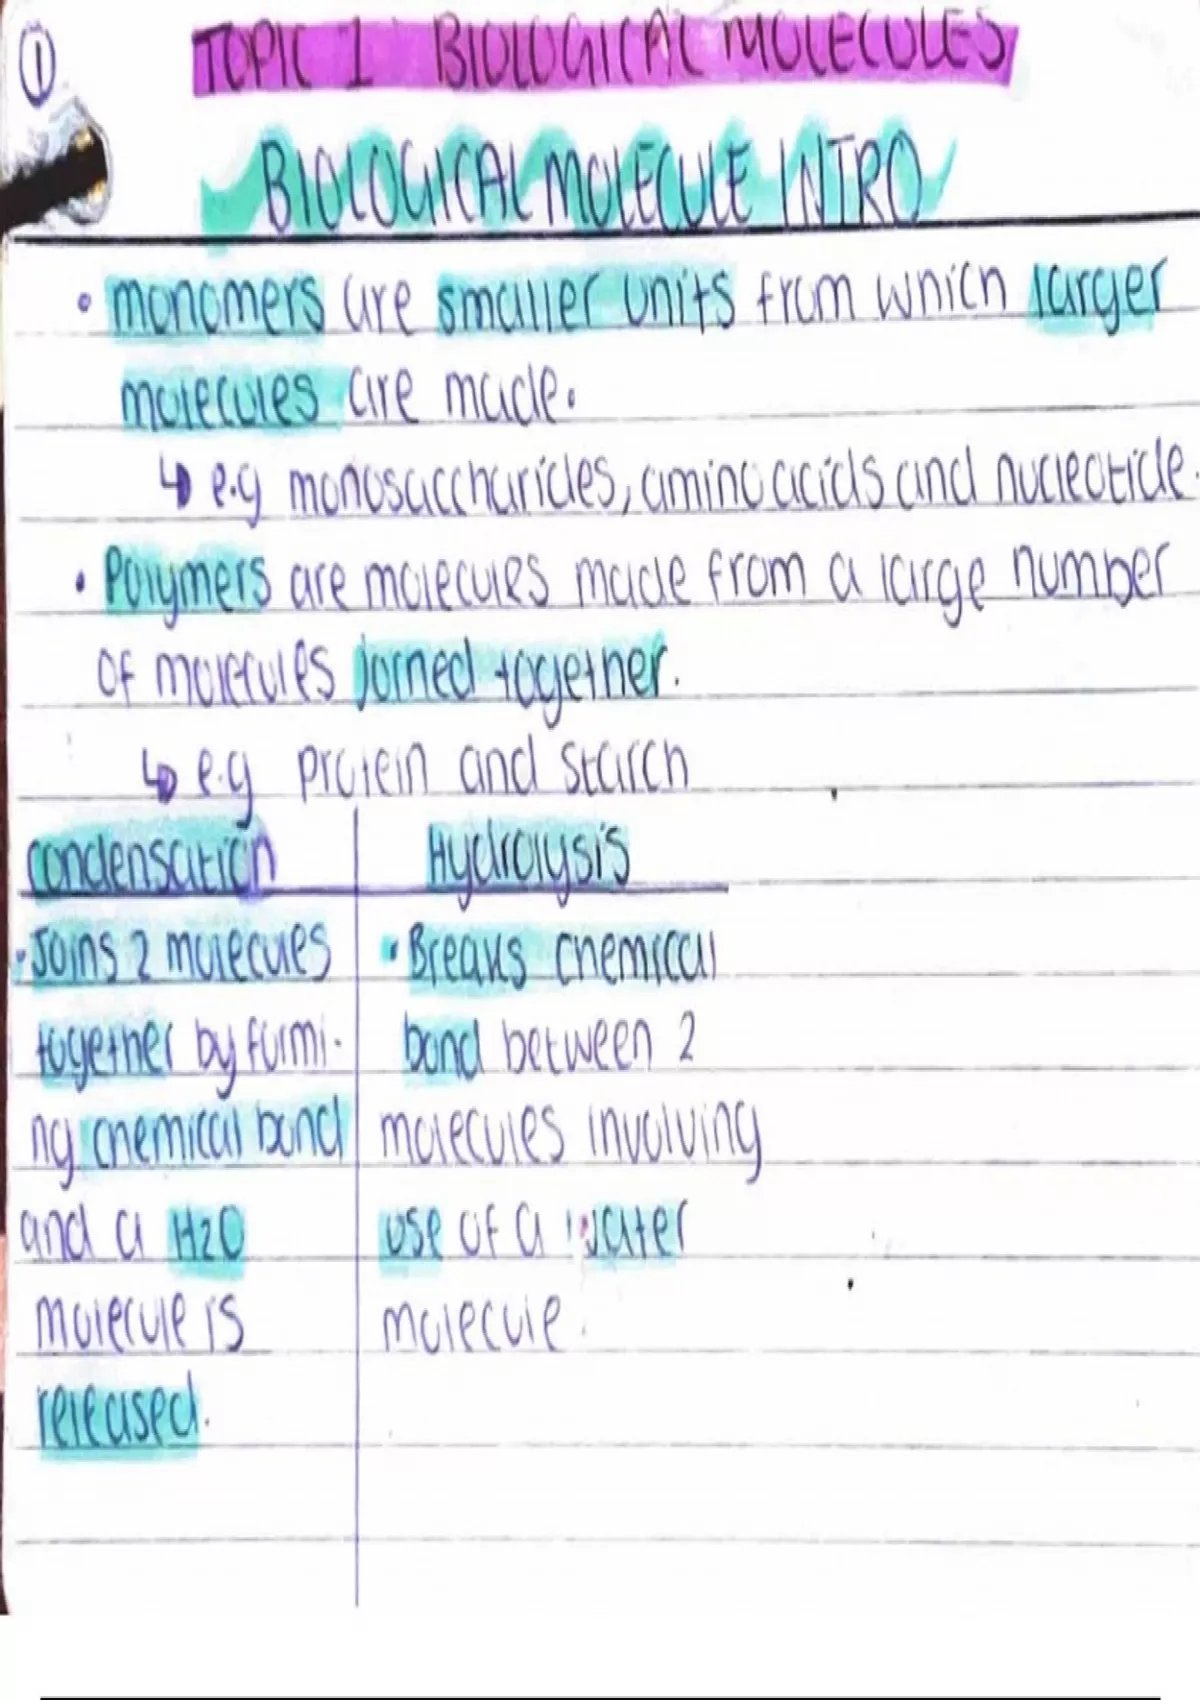 ①
TOPIC 1 BIOLOGICAL MOLECULES
BIOLOGICAL MOLECULE INTRO
• monomers are smaller units from which larger
molecules are made.
↳ e.g monosaccharides, amino acids and nucleotide.
• Polymers are molecules made from a large number
of molecules joined together.
↳ e.g protein and starch
condensation
• Joins 2 molecules
together by formi-
ng chemical bond
and a H2O
molecule is
released.
Hydrolysis
• Breaks chemical
bond between 2
molecules involving
use of a water
molecule.